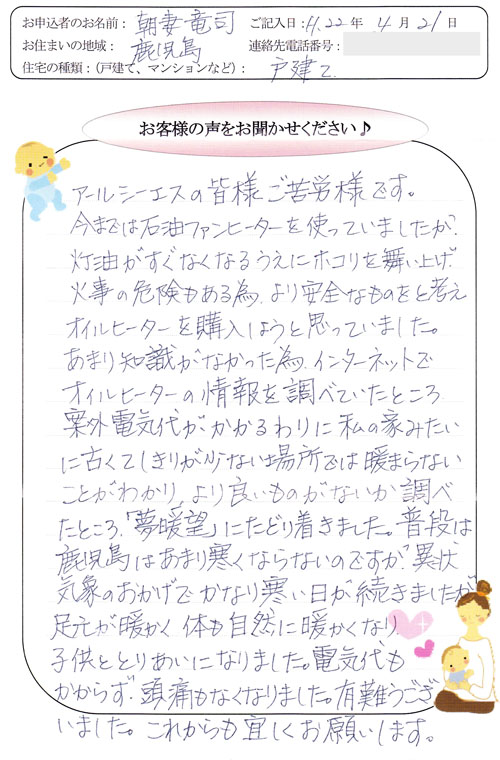 お申込者のお名前: 朝妻 竜司 ご記入日: H.22年 4月 21日
お住まいの地域: 鹿児島 連絡先電話番号:
住宅の種類:(戸建て、マンションなど): 戸建て
お客様の声をお聞かせください♪
アールシーエスの皆様ご苦労様です。
今までは石油ファンヒーターを使っていましたが、
灯油がすぐなくなるうえにホコリを舞い上げ、
火事の危険もある為、より安全なものをと考え
オイルヒーターを購入しようと思っていました。
あまり知識がなかった為、インターネットで
オイルヒーターの情報を調べていたところ
案外電気代がかかるわりに私の家みたい
に古くてしきりが少ない場所では暖まらない
ことがわかり、より良いものがないか調べ
たところ、「夢暖望」にたどり着きました。普段は
鹿児島はあまり寒くならないのですが、異状
気象のおかげでかなり寒い日が続きましたが
足元が暖かく体も自然に暖かくなり、
子供ととりあいになりました。電気代も
かからず、頭痛もなくなりました。有難うござ
いました。これからも宜しくお願いします。